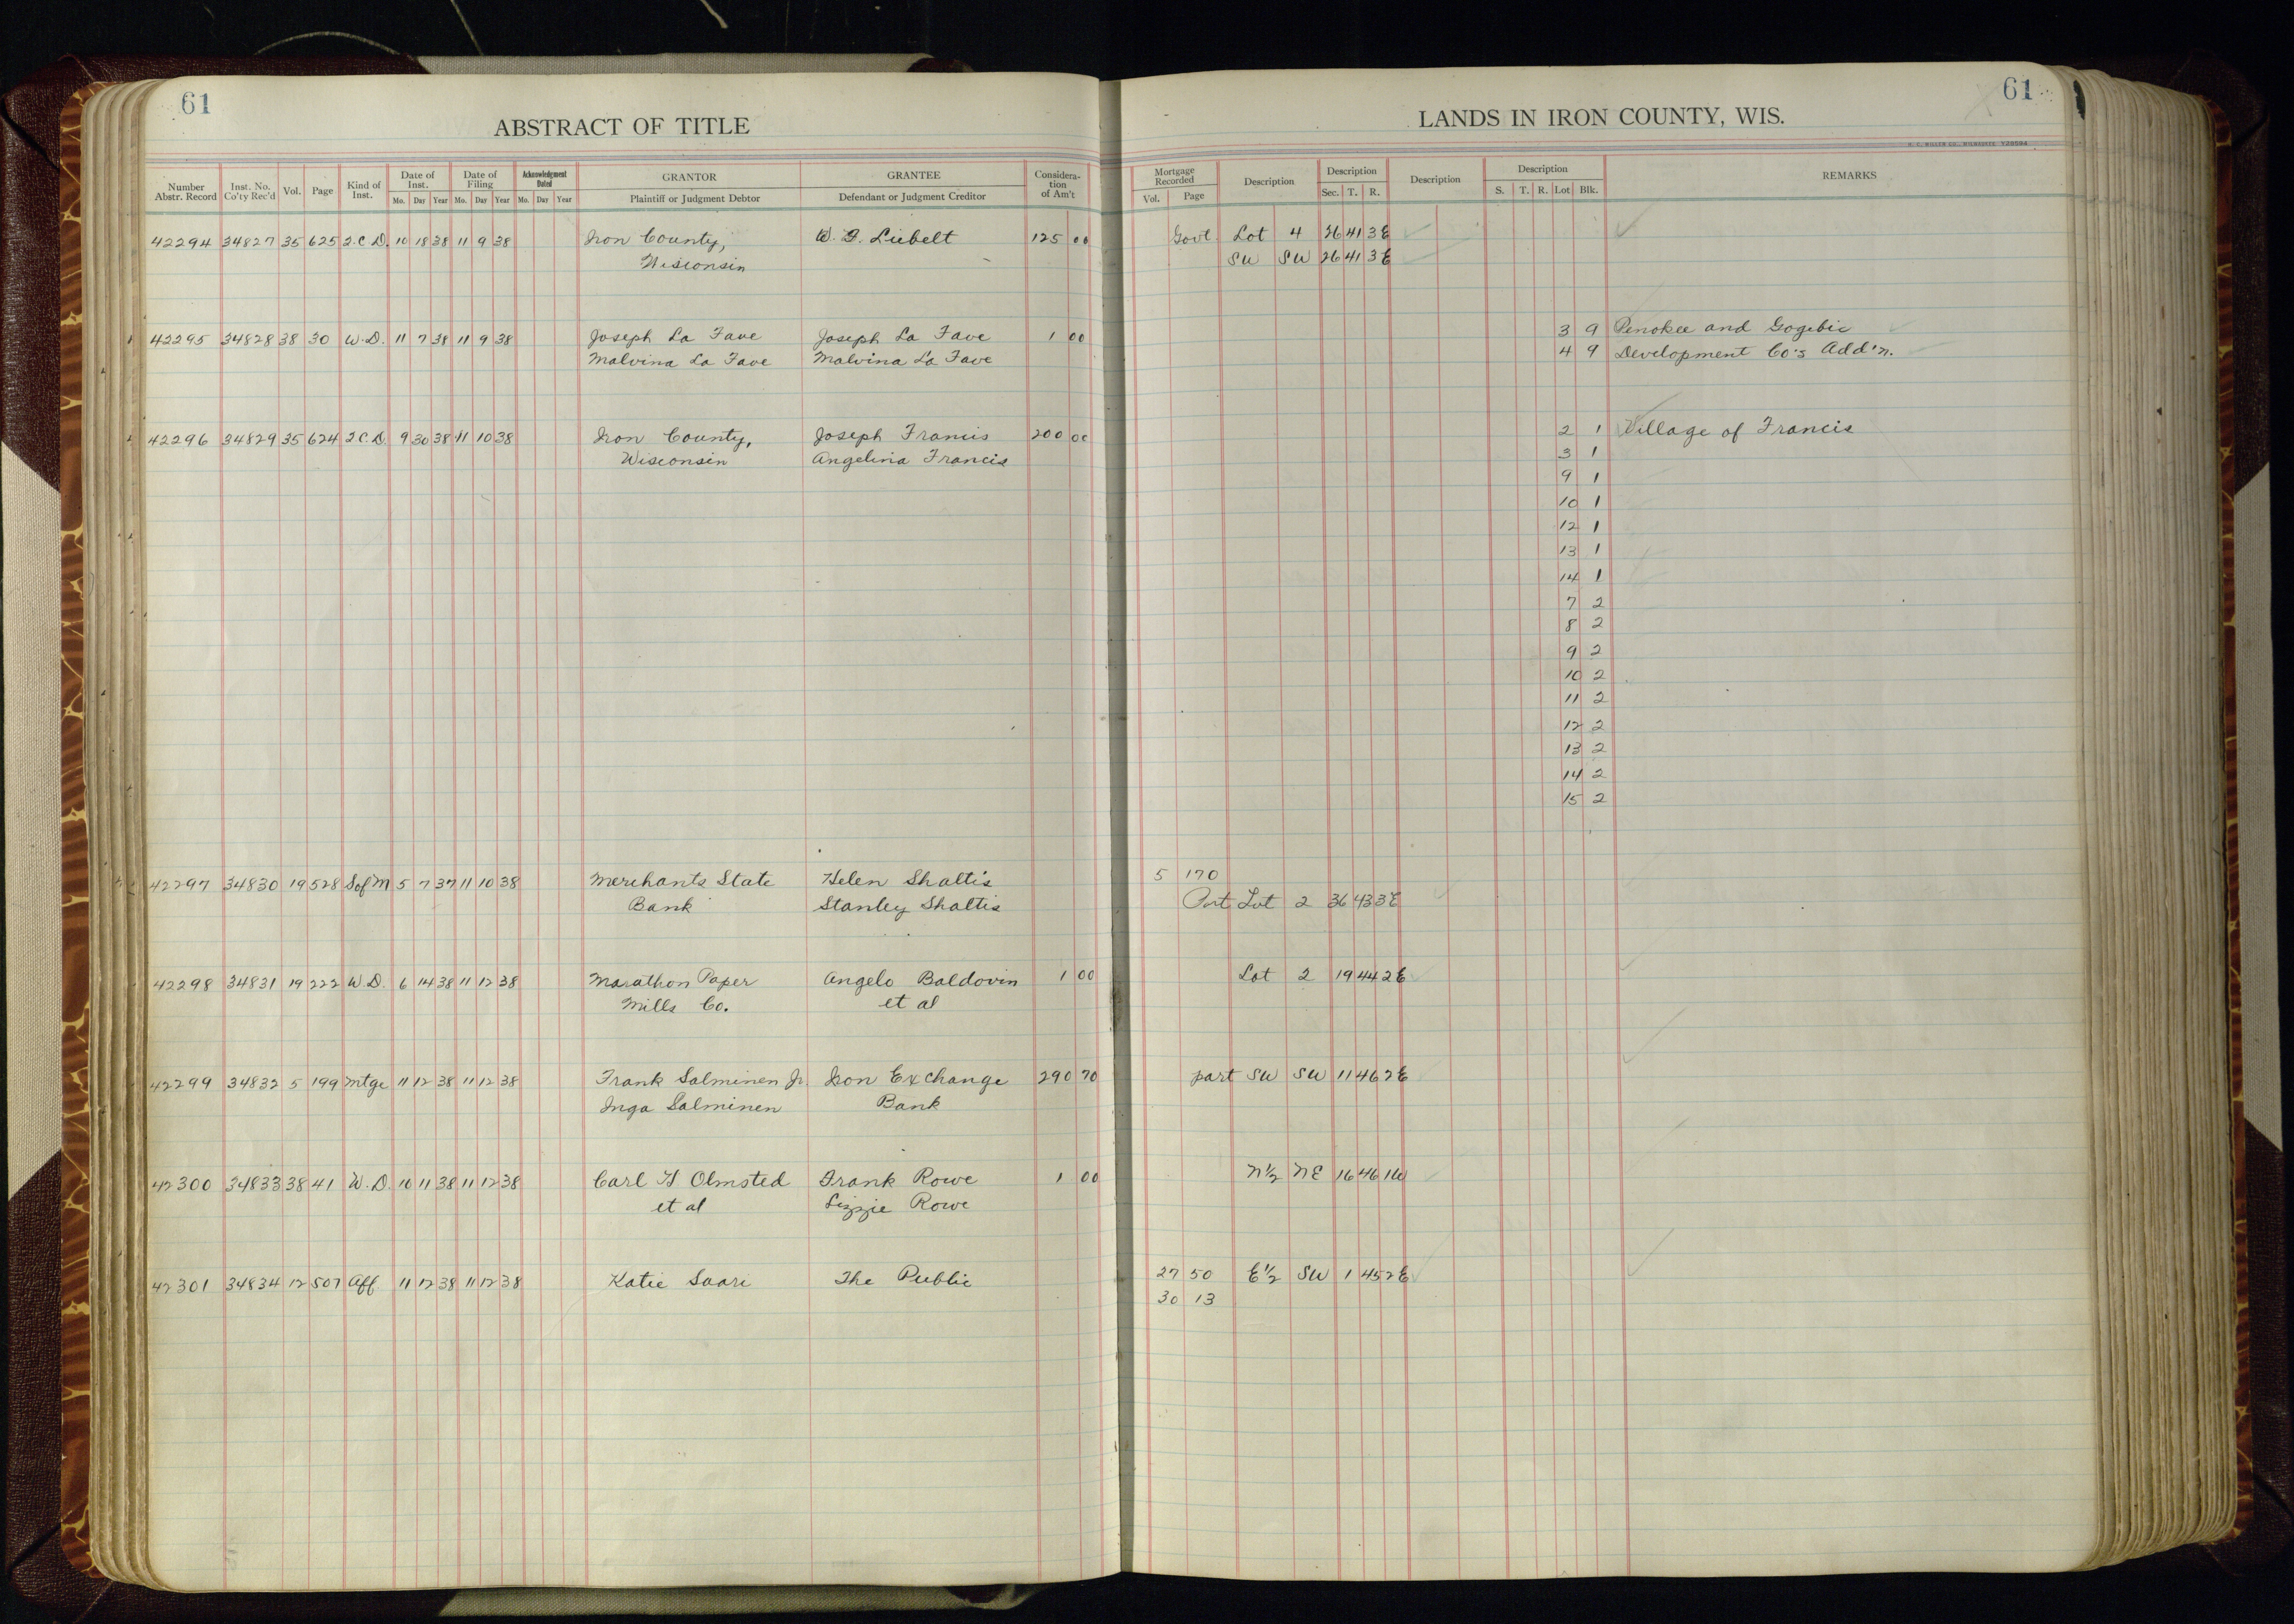 61
ABSTRACT OF TITLE
Number Abstr. Record
Inst. No. Co'ty Rec'd
Vol.
Page
Kind of Inst.
Date of Inst.
Mo. Day Year
Date of Filing
Mo. Day Year
Acknowledgment Dated
Mo. Day Year
GRANTOR
Plaintiff or Judgment Debtor
GRANTEE
Defendant or Judgment Creditor
Considera-tion of Am't
42294 34827 35 625 2.C.D. 10 18 38 11 9 38 Iron County, W. F. Liebelt 125 00
Wisconsin
42295 34828 38 30 W.D. 11 7 38 11 9 38 Joseph La Fave Joseph La Fave 1 00
Malvina La Fave Malvina La Fave
42296 34829 35 624 2C.D. 9 30 38 11 10 38 Iron County, Joseph Francis 200 00
Wisconsin Angelina Francis
42297 34830 19 528 S of M 5 7 37 11 10 38 Merchants State Helen Shaltis
Bank Stanley Shaltis
42298 34831 19 222 W.D. 6 14 38 11 12 38 Marathon Paper Angelo Baldovin 1 00
Mills Co. et al
42299 34832 5 199 Mtge 11 12 38 11 12 38 Frank Salminen Jr. Iron Exchange 290 70
Inga Salminen Bank
42300 34833 38 41 W.D. 10 11 38 11 12 38 Carl H Olmsted Frank Rowe 1 00
et al Lizzie Rowe
42301 34834 12 507 Aff. 11 12 38 11 12 38 Katie Saari The Public
61
LANDS IN IRON COUNTY, WIS.
H. C. MILLER CO., MILWAUKEE Y20594
Mortgage Recorded
Vol. Page
Description
Description
Sec. T. R.
Description
Description
S. T. R. Lot Blk.
REMARKS
Govt. Lot 4 26 41 3E
SW SW 26 41 3E
3 9 Penokee and Gogebic
4 9 Development Co's Add'n.
2 1 Village of Francis
3 1
9 1
10 1
12 1
13 1
14 1
7 2
8 2
9 2
10 2
11 2
12 2
13 2
14 2
15 2
5 170
Part Lot 2 36 43 3E
Lot 2 19 44 2E
part SW SW 11 46 2E
N½ NE 16 46 1W
27 50 E½ SW 1 45 2E
30 13